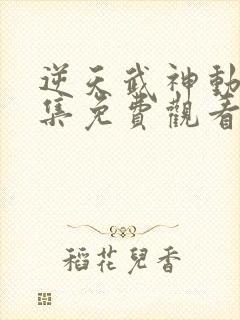 逆天武神動
集免費觀看
稻花兒香